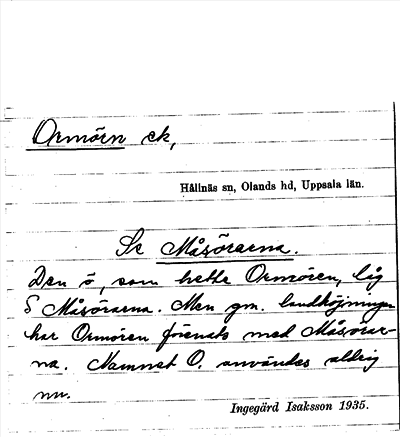 Ormörn ek,
Hållnäs sn, Olands hd, Uppsala län.
Se Måsörarna.
Den ö, som hette Ormören, låg
S Måsörarna. Men gm. landhöjningen
har Ormören förenats med Måsörar-
na. Namnet O. användes aldrig
nu.
Ingegärd Isaksson 1935.